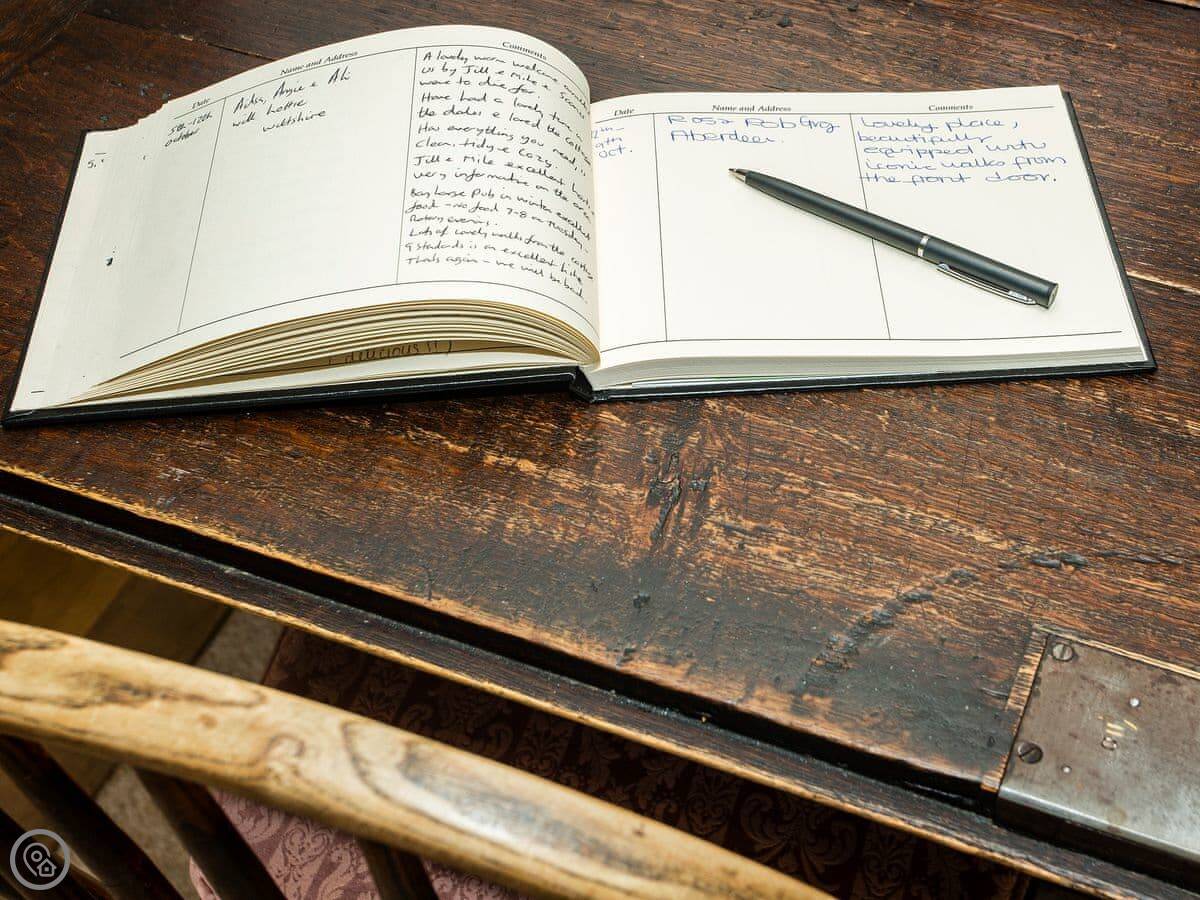 Date
Name and Address
Comments
5th-12th
October
Ailsa, Angie & Ali
with Lottie
Wiltshire
A lovely warm welcome
us by Jill & Mike & Scones
were to die for
Have had a lovely time in
the dales & loved the cottage
Has everything you need, is
Clean, tidy & cozy.
Jill & Mike excellent hosts
very informative on the area
Bay Horse Pub in Winter excellent
food - no food 7-8 on Tuesday,
Rotary evening.
Lots of lovely walks from the cottage
9 standards is an excellent hike.
Thanks again - we will be back.
Date
Name and Address
Comments
9th
Oct.
Rosa Rob Grg
Aberdeen.
Lovely place,
beautifully
equipped with
iconic walks from
the front door.
delicious !!)